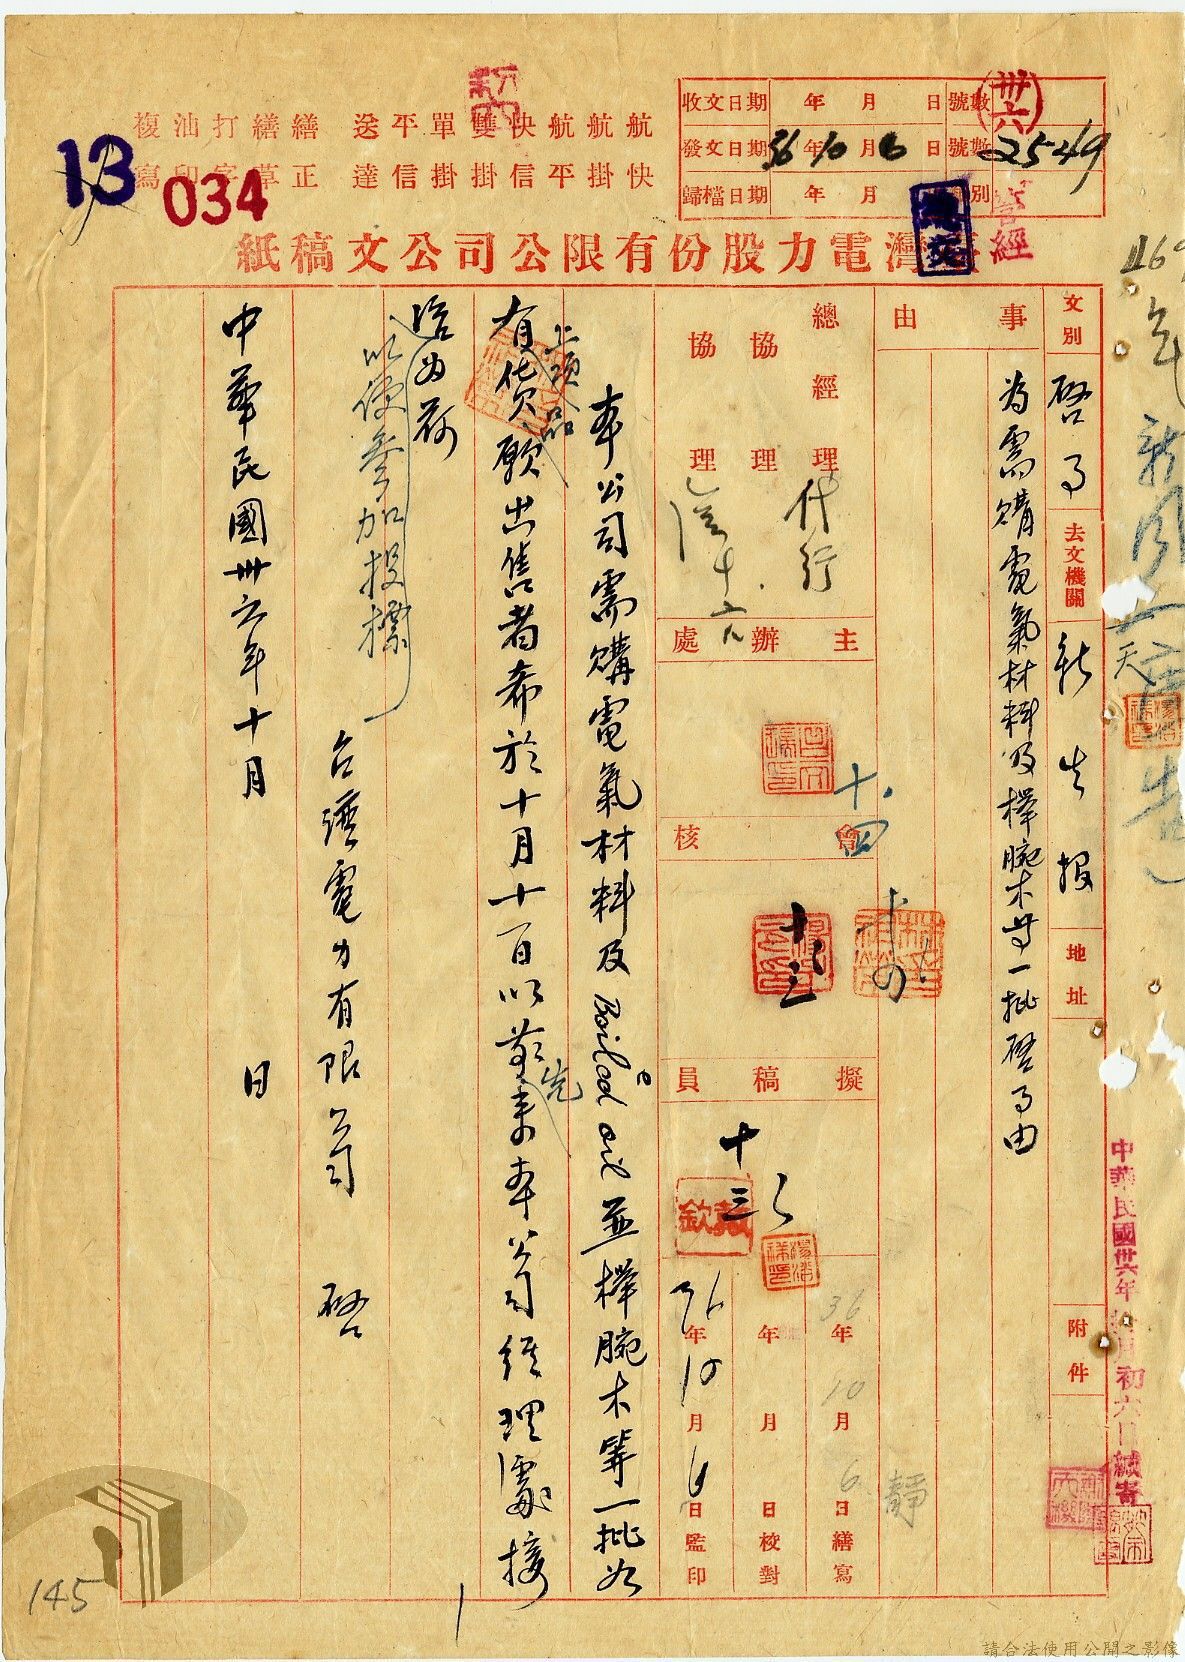 收文日期　年　月　日　號數
發文日期　36年10月6日　號數　2549
歸檔日期　年　月　別
(卅六)
航快
航掛
航平
快信
雙掛
單掛
平信
送達
繕正
繕草
打字
油印
複寫
13
034
台灣電力股份有限公司公文稿紙
文別　啓事
去文機關　新生報
地址
附件
事由
為需購電氣材料及櫸腕木等一批啓事由
總經理
代行
協理
協理
主辦處
會核
十、四
擬稿員
36年10月6日繕寫
年　月　日校對
36年10月6日監印
靜
本公司需購電氣材料及Boiled oil並櫸腕木等一批如
有上項貨品願出售者希於十月十一日以前先來本公司經理處接
洽為荷
以便參加投標
台灣電力有限公司　啓
中華民國卅六年十月　日
中華民國卅六年拾月初六日繕寄
145
請合法使用公開之影像